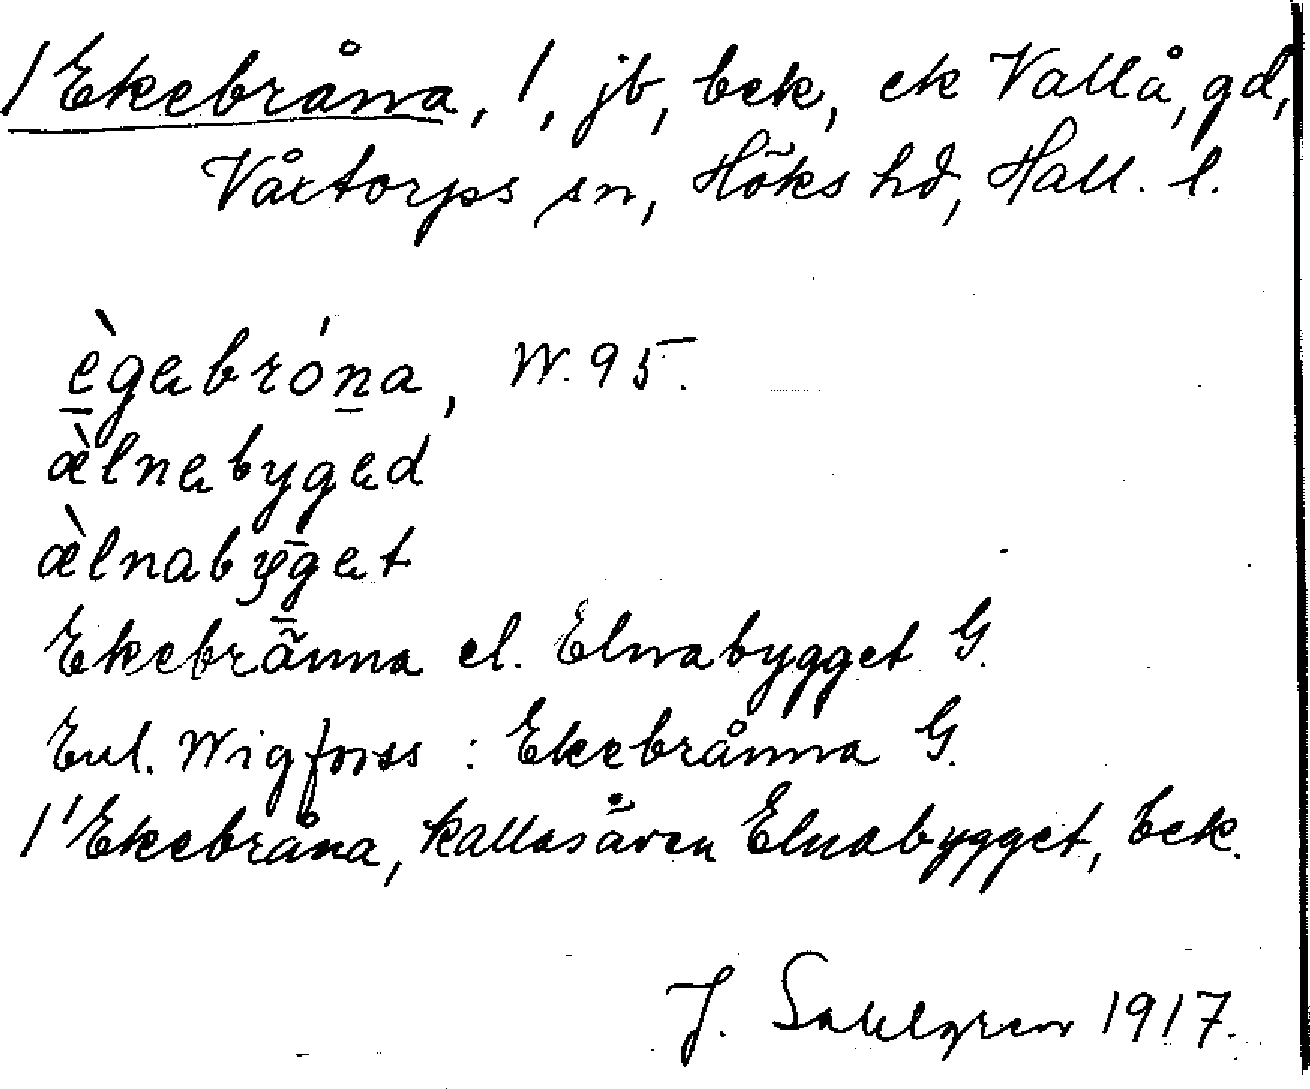 /Ekebråna, /, jb, bek, ek Vallå, gd,
Vårtorps sn, Höks hd, Hall. l.
ègabróna, W. 95.
æ̀lnabygad
æ̀lnabygat
Ekebränna el. Elnabygget G.
Enl. Wigforss : Ekebrånna G.
/'Ekebråna, kallas även Elnabygget, bek.
J. Sahlgren 1917.